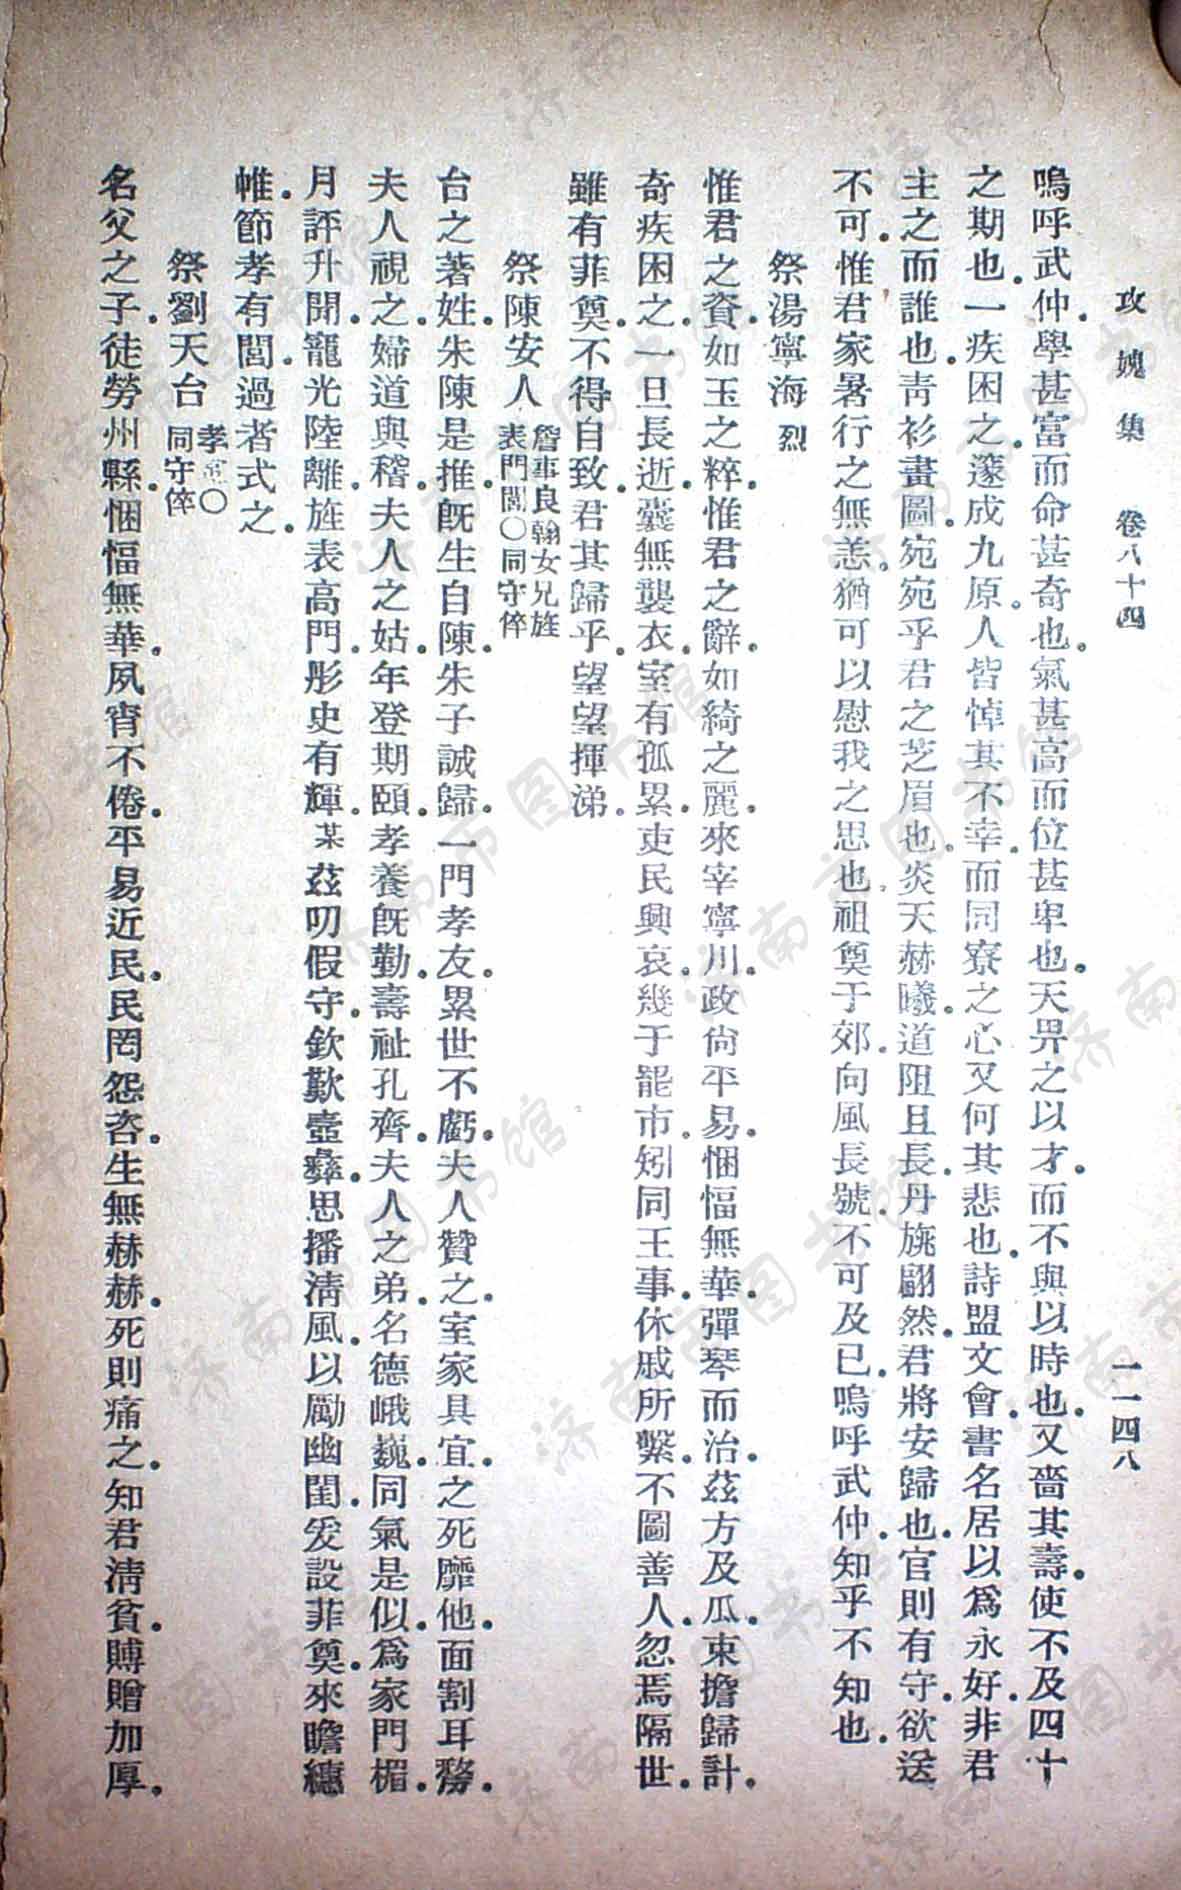 攻媿集　卷八十四　一一四八
嗚呼武仲。學甚富而命甚奇也。氣甚高而位甚卑也。天畀之以才。而不與以時也。又嗇其壽。使不及四十
之期也。一疾困之。遂成九原。人皆悼其不幸。而同寮之心又何其悲也。詩盟文會。書名居以爲永好。非君
主之而誰也。靑衫畫圖。宛宛乎君之芝眉也。炎天赫曦。道阻且長。丹旐翩然。君將安歸也。官則有守。欲送
不可。惟君家暑行之無恙。猶可以慰我之思也。祖奠于郊。向風長號。不可及已。嗚呼武仲。知乎不知也。
祭湯寧海 烈
惟君之資。如玉之粹。惟君之辭。如綺之麗。來宰寧川。政尙平易。悃愊無華。彈琴而治。茲方及瓜。束擔歸計。
奇疾困之。一旦長逝。囊無襲衣。室有孤累。吏民興哀。幾于罷市。矧同王事。休戚所繫。不圖善人。忽焉隔世。
雖有菲奠。不得自致。君其歸乎。望望揮涕。
祭陳安人 詹事良翰女兄旌表門閭〇同守倅
台之著姓。朱陳是推。旣生自陳。朱子誠歸。一門孝友。累世不虧。夫人贊之。室家具宜。之死靡他。面割耳剺。
夫人視之。婦道與稽。夫人之姑。年登期頤。孝養旣勤。壽祉孔齊。夫人之弟。名德峨巍。同氣是似。爲家門楣。
月評升聞。寵光陸離。旌表高門。彤史有輝。某茲叨假守。欽歎壼彝。思播淸風。以勵幽閨。爰設菲奠。來瞻繐
帷。節孝有閭。過者式之。
祭劉天台 孝〇同守倅
名父之子。徒勞州縣。悃愊無華。夙宵不倦。平易近民。民罔怨咨。生無赫赫。死則痛之。知君淸貧。賻贈加厚。